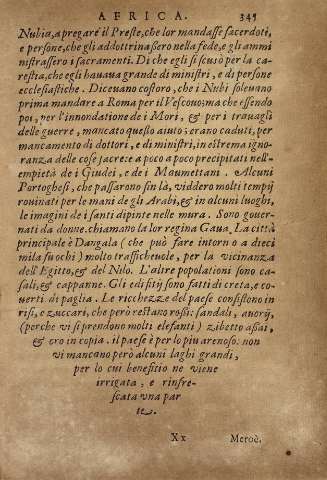 AFRICA. 345
Nubia, a pregare il Preste, che lor mandasse sacerdoti,
e persone, che gli addottrinassero nella fede, e gli ammi
nistrassero i sacramenti. Di che egli si scusò per la ca-
restia, che egli haueua grande di ministri, e di persone
ecclesiastiche. Diceuano costoro, che i Nubi soleuano
prima mandare a Roma per il Vescouo: ma che essendo
poi, per l'innondatione de i Mori, & per i trauagli
delle guerre, mancato questo aiuto; erano caduti, per
mancamento di dottori, e di ministri, in estrema igno-
ranza delle cose sacre: e a poco a poco precipitati nell'-
empietà de i Giudei, e de i Maumettani. Alcuni
Portoghesi, che passarono sin là, viddero molti tempij
rouinati per le mani de gli Arabi, & in alcuni luoghi,
le imagini de i santi dipinte nelle mura. Sono gouer-
nati da donne. chiamano la lor regina Gaua. La città
principale è Dangala (che può fare intorno a dieci
mila fuochi) molto trafficheuole, per la vicinanza
dell'Egitto, & del Nilo. L'altre popolationi sono ca-
sali, & cappanne. Gli edifitij sono fatti di creta, e co-
uerti di paglia. Le ricchezze del paese consistono in
risi, e zuccari, che però restano rossi: sandali, auorij,
(perche vi si prendono molti elefanti) zibetto assai,
& oro in copia. il paese è per lo più arenoso: non
vi mancano però alcuni laghi grandi,
per lo cui benefitio ne viene
irrigata, e rinfre-
scata vna par
te.
Xx Meroè.